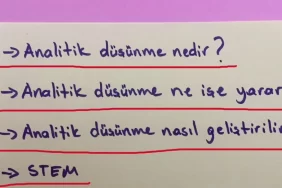 → Analitik düşünme nedir?
→ Analitik düşünme ne işe yarar
→ Analitik düşünme nasıl geliştirili
→ STEM